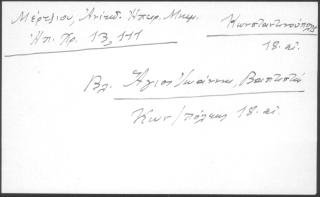 Μέρτζιου, Ἀνέκδ. Ἠπειρ. Μνημ.
Ἠπ. Χρ. 13, 111
Κωνσταντινούπολις
18. αἰ.
Βλ. Ἅγιος Ἰωάννης, Βαπτιστὴς
Κων/πόλεως 18. αἰ.